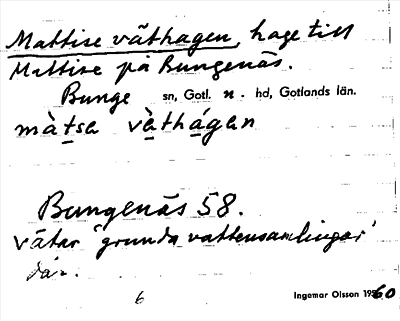 Mattise väthagen, hage till
Mattise på Bungenäs.
Bunge sn, Gotl. n. hd, Gotlands län.
màtsa vä̀thágen
Bungenäs 58.
vätar "grunda vattensamlingar"
där.
6
Ingemar Olsson 1960